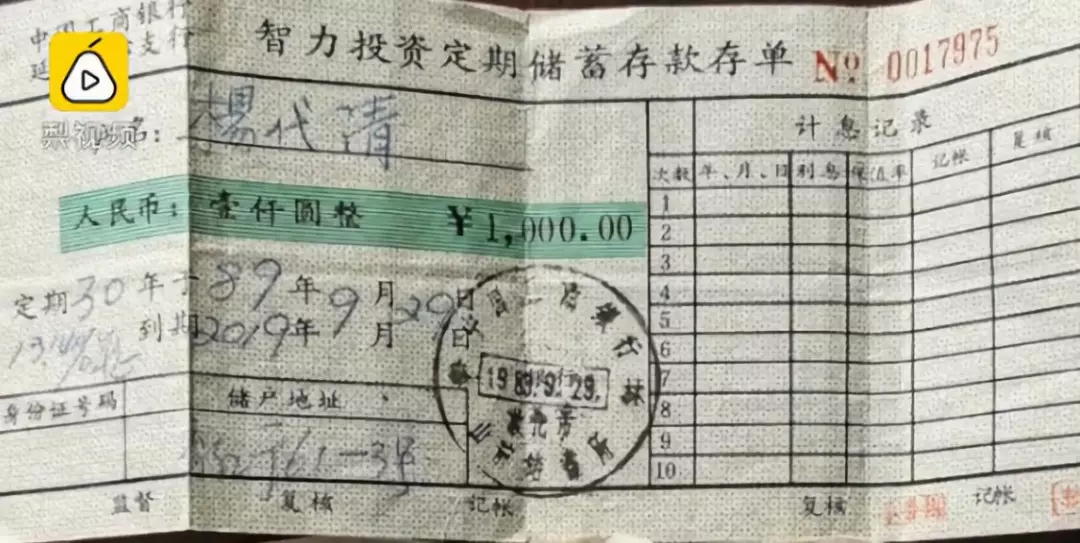 中国工商银行
智力投资定期储蓄存款存单
№ 0017975
支行
梨视频
名：楊代清
计息记录
次数 年、月、日 利息 保值率 记帐 复核
人民币：壹仟圆整 ￥1,000.00
1
2
3
4
5
6
7
8
9
10
定期30年于89年9月29日
到期2019年9月29日
1989.9.29.
身份证号码 储户地址
监督 复核 记帐 复核 记帐